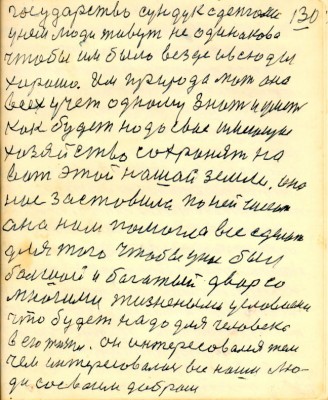 государство сундук с детками 130
у ней люди живут не одинаково
чтобы им было везде и всюду
хорошо. Им природа мать она
всех учет одному знат и уметь
как будет надо свае
хозяйство сохранят на
вот этой нашай земли. она
нас заставила по ней
она нам помогла все сделат
для того чтобы у нас был
балшой и багатый двар со
многими жизнеными условиями
что будет надо для человека
в его жизни. он интересовался тем
чем интересовалас все наши лю-
ди. со сваим добром